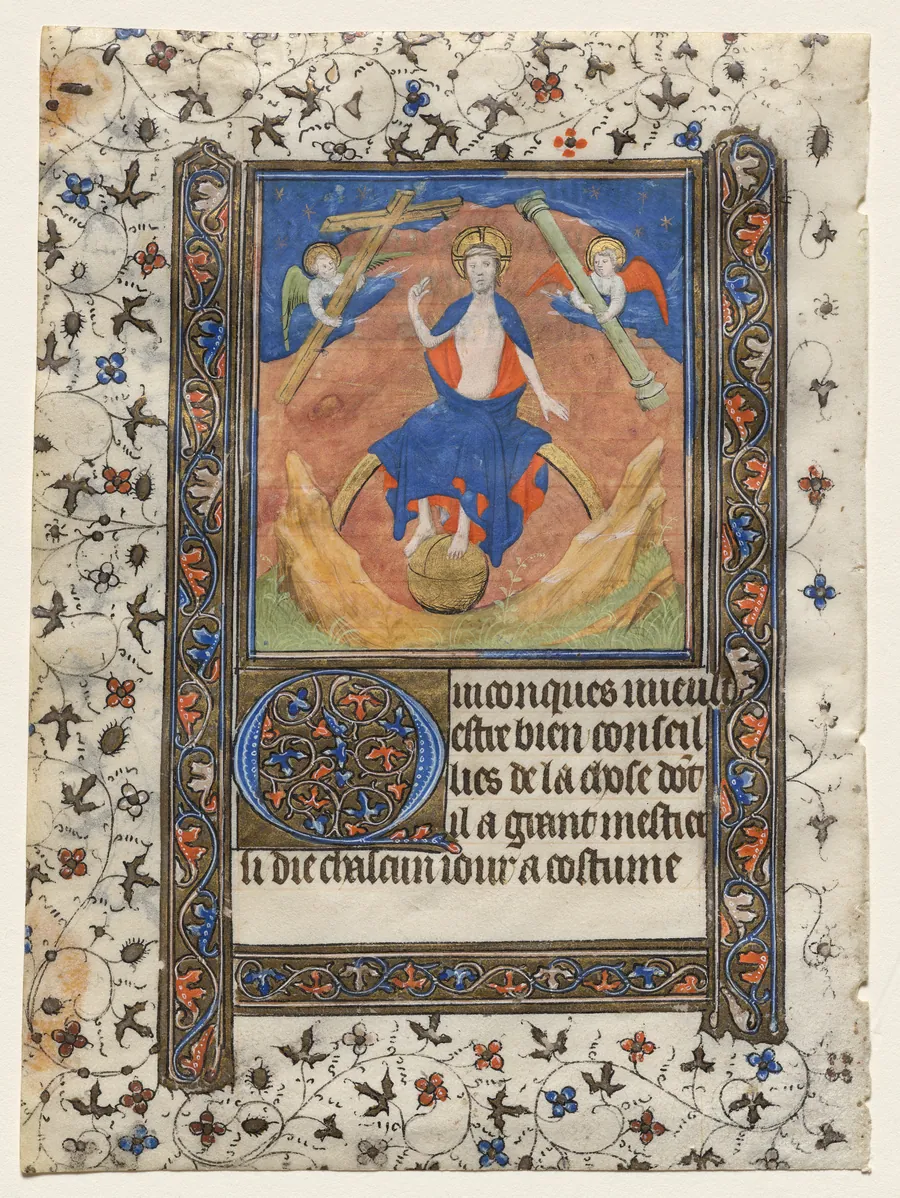 Quiconques uueult
estre bien conseil
lies de la chose dōt
il a grant mestier
si die chascun iour a costume